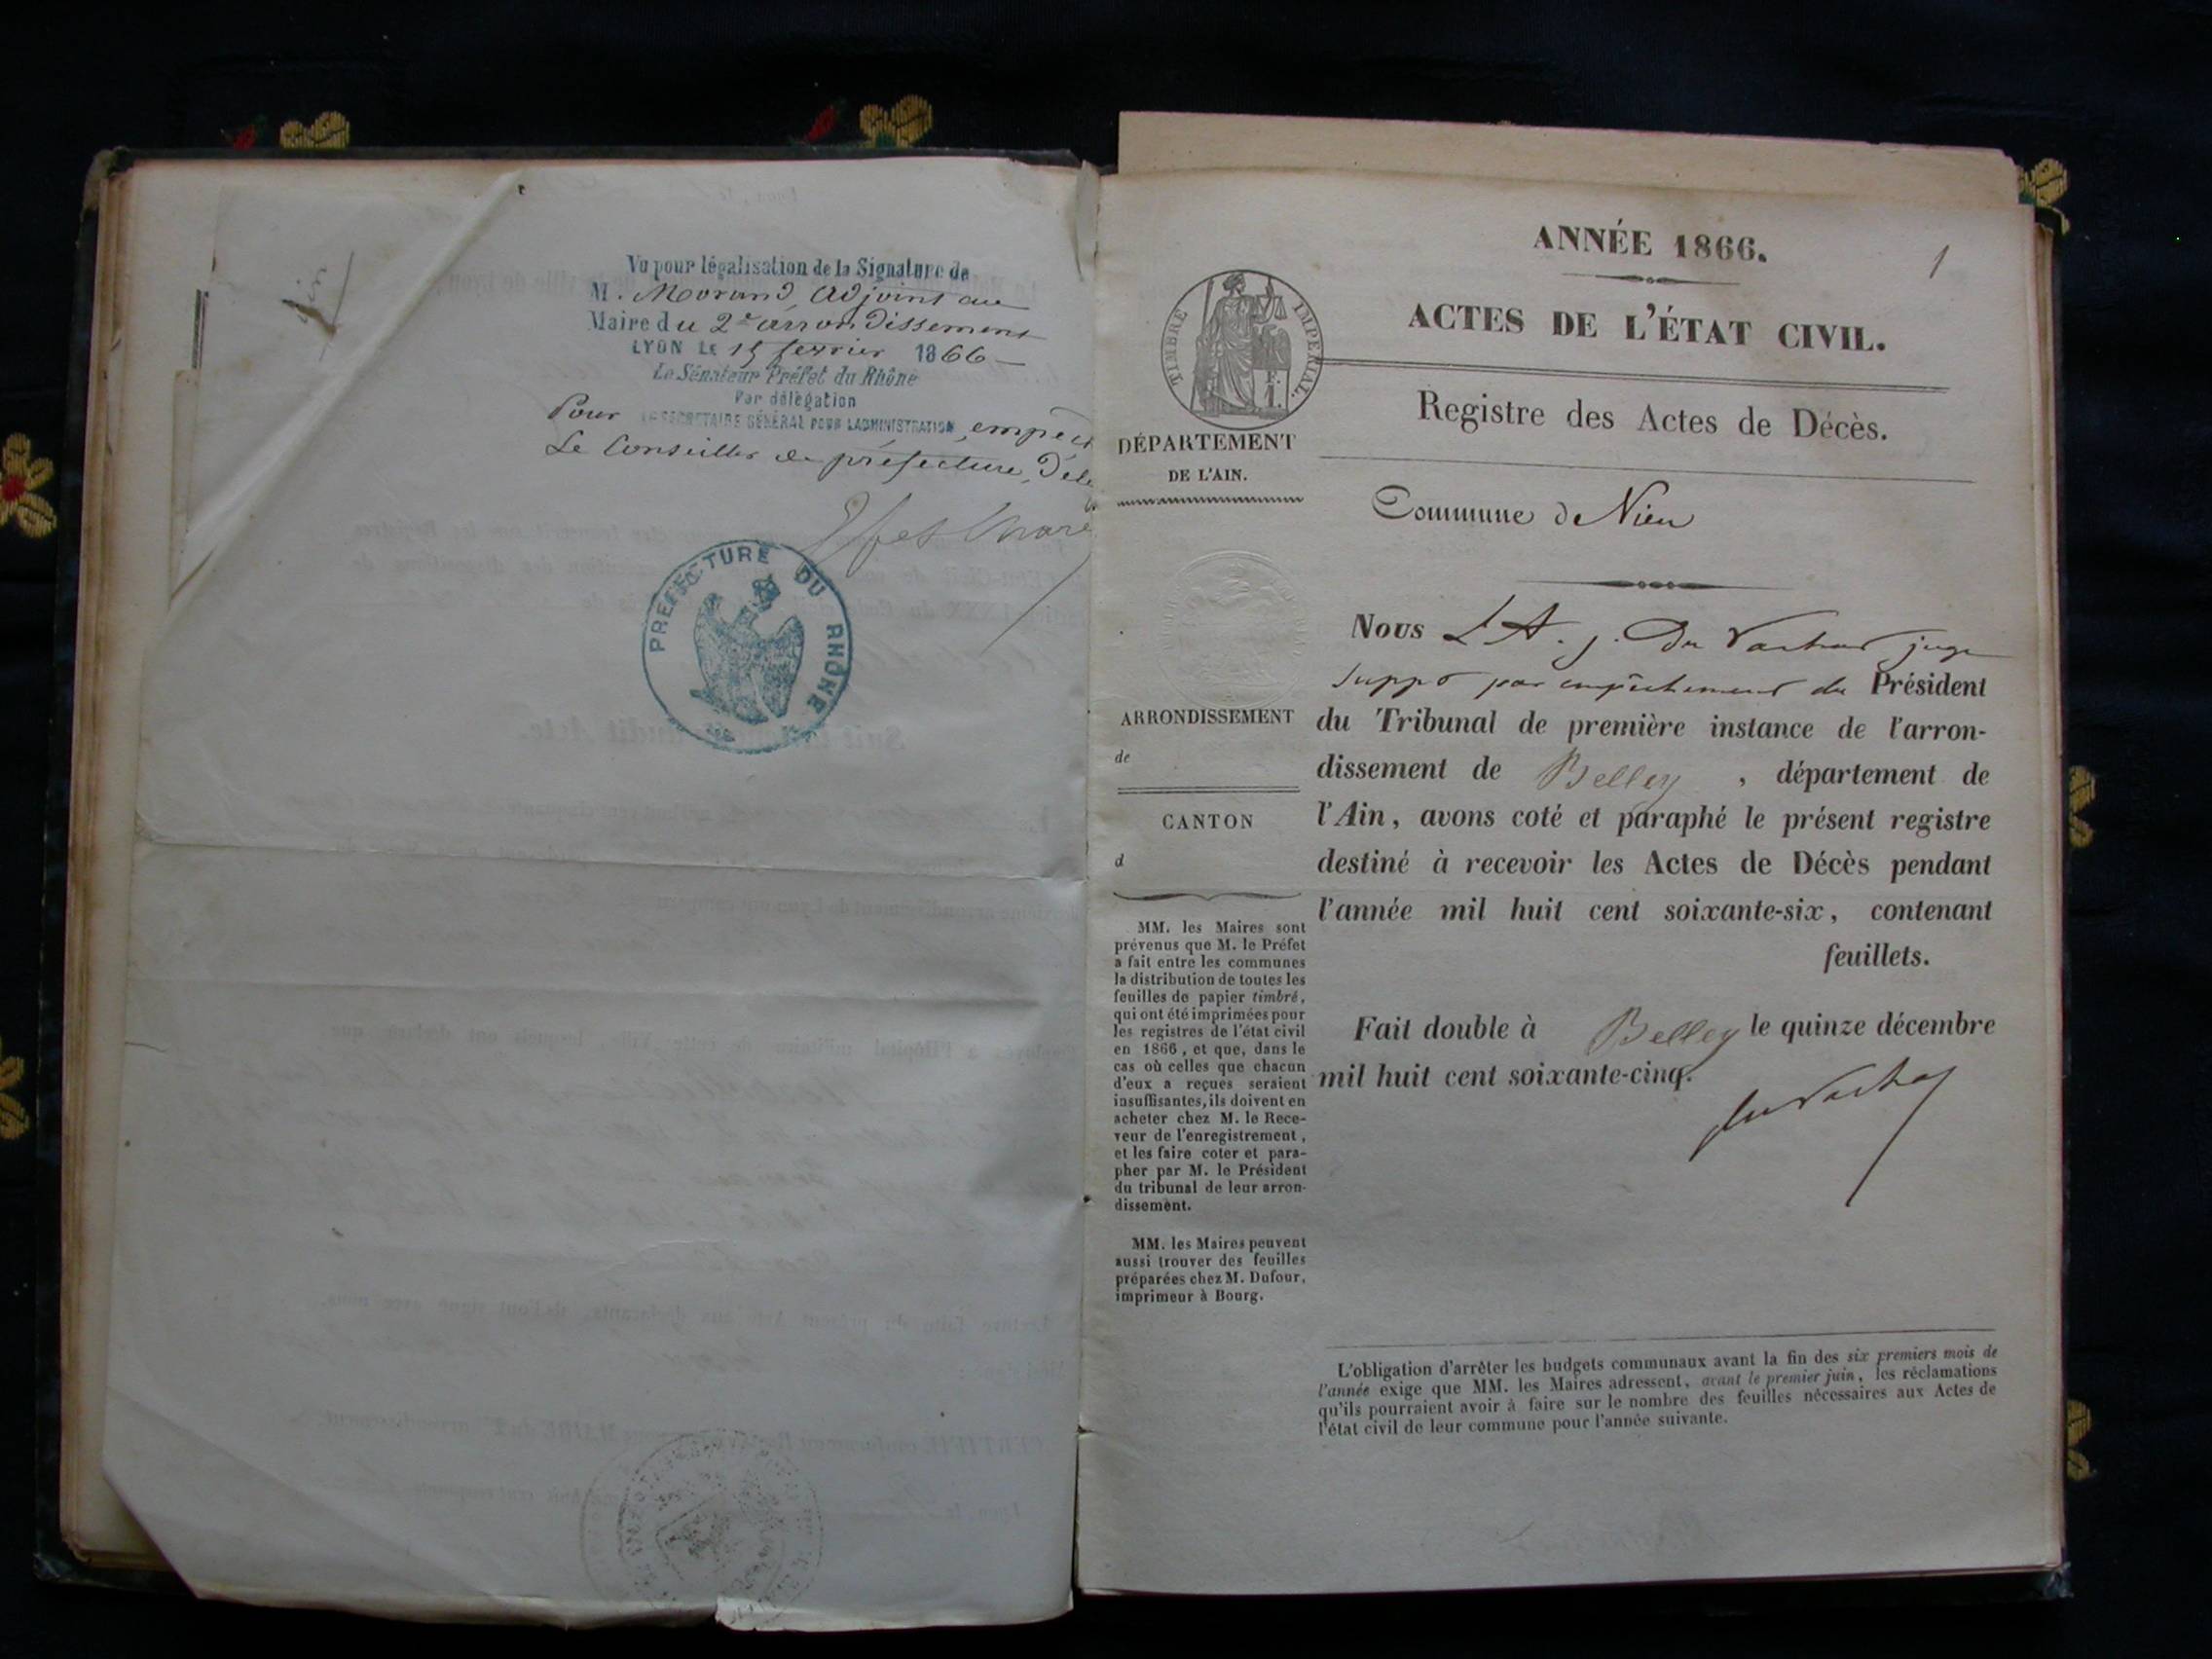 Vu pour légalisation de la Signature de
M. Morand, Adjoint au
Maire du 2e arrondissement
LYON LE 15 février 1866
Le Sénateur Préfet du Rhône
Par délégation
Pour LE SECRÉTAIRE GÉNÉRAL POUR L'ADMINISTRATION, empêc
Le Conseiller de préfecture, délé
PRÉFECTURE DU RHÔNE
ANNÉE 1866.
1
ACTES DE L'ÉTAT CIVIL.
Registre des Actes de Décès.
TIMBRE IMPERIAL.
DÉPARTEMENT
DE L'AIN.
Commune de Nieu
ARRONDISSEMENT
de
CANTON
d
MM. les Maires sont
prévenus que M. le Préfet
a fait entre les communes
la distribution de toutes les
feuilles de papier timbré,
qui ont été imprimées pour
les registres de l'état civil
en 1866, et que, dans le
cas où celles que chacun
d'eux a reçues seraient
insuffisantes, ils doivent en
acheter chez M. le Rece-
veur de l'enregistrement,
et les faire coter et para-
pher par M. le Président
du tribunal de leur arron-
dissement.
MM. les Maires peuvent
aussi trouver des feuilles
préparées chez M. Dufour,
imprimeur à Bourg.
Nous L A. j. Du Vachat juge
suppt par empêchement du Président
du Tribunal de première instance de l'arron-
dissement de Belley, département de
l'Ain, avons coté et paraphé le présent registre
destiné à recevoir les Actes de Décès pendant
l'année mil huit cent soixante-six, contenant
feuillets.
Fait double à Belley le quinze décembre
mil huit cent soixante-cinq.
du Vachat
L'obligation d'arrêter les budgets communaux avant la fin des six premiers mois de
l'année exige que MM. les Maires adressent, avant le premier juin, les réclamations
qu'ils pourraient avoir à faire sur le nombre des feuilles nécessaires aux Actes de
l'état civil de leur commune pour l'année suivante.